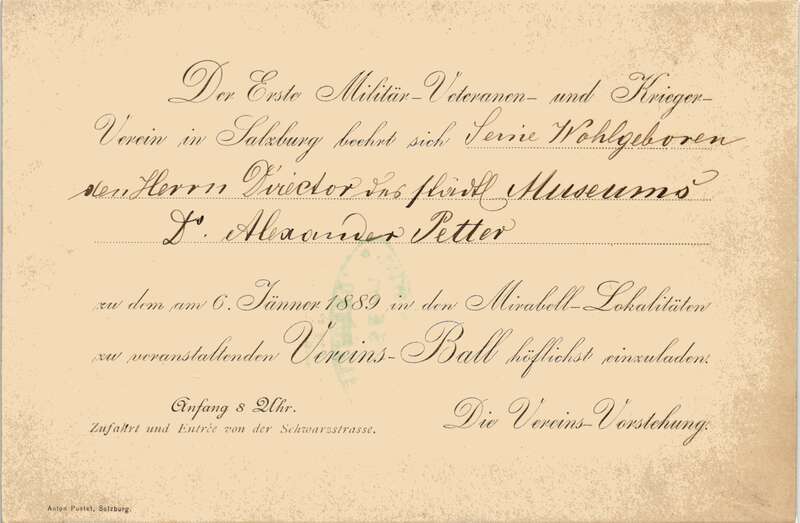 Der Erste Militär-Veteranen- und Krieger-
Verein in Salzburg beehrt sich Seine Wohlgeboren
den Herrn Director des städtl Museums
Dr. Alexander Petter
zu dem am 6. Jänner 1889 in den Mirabell-Lokalitäten
zu veranstaltenden Vereins-Ball höflichst einzuladen.
Anfang 8 Uhr.
Zufahrt und Entrée von der Schwarzstrasse.
Die Vereins-Vorstehung.
Anton Pustet, Salzburg.